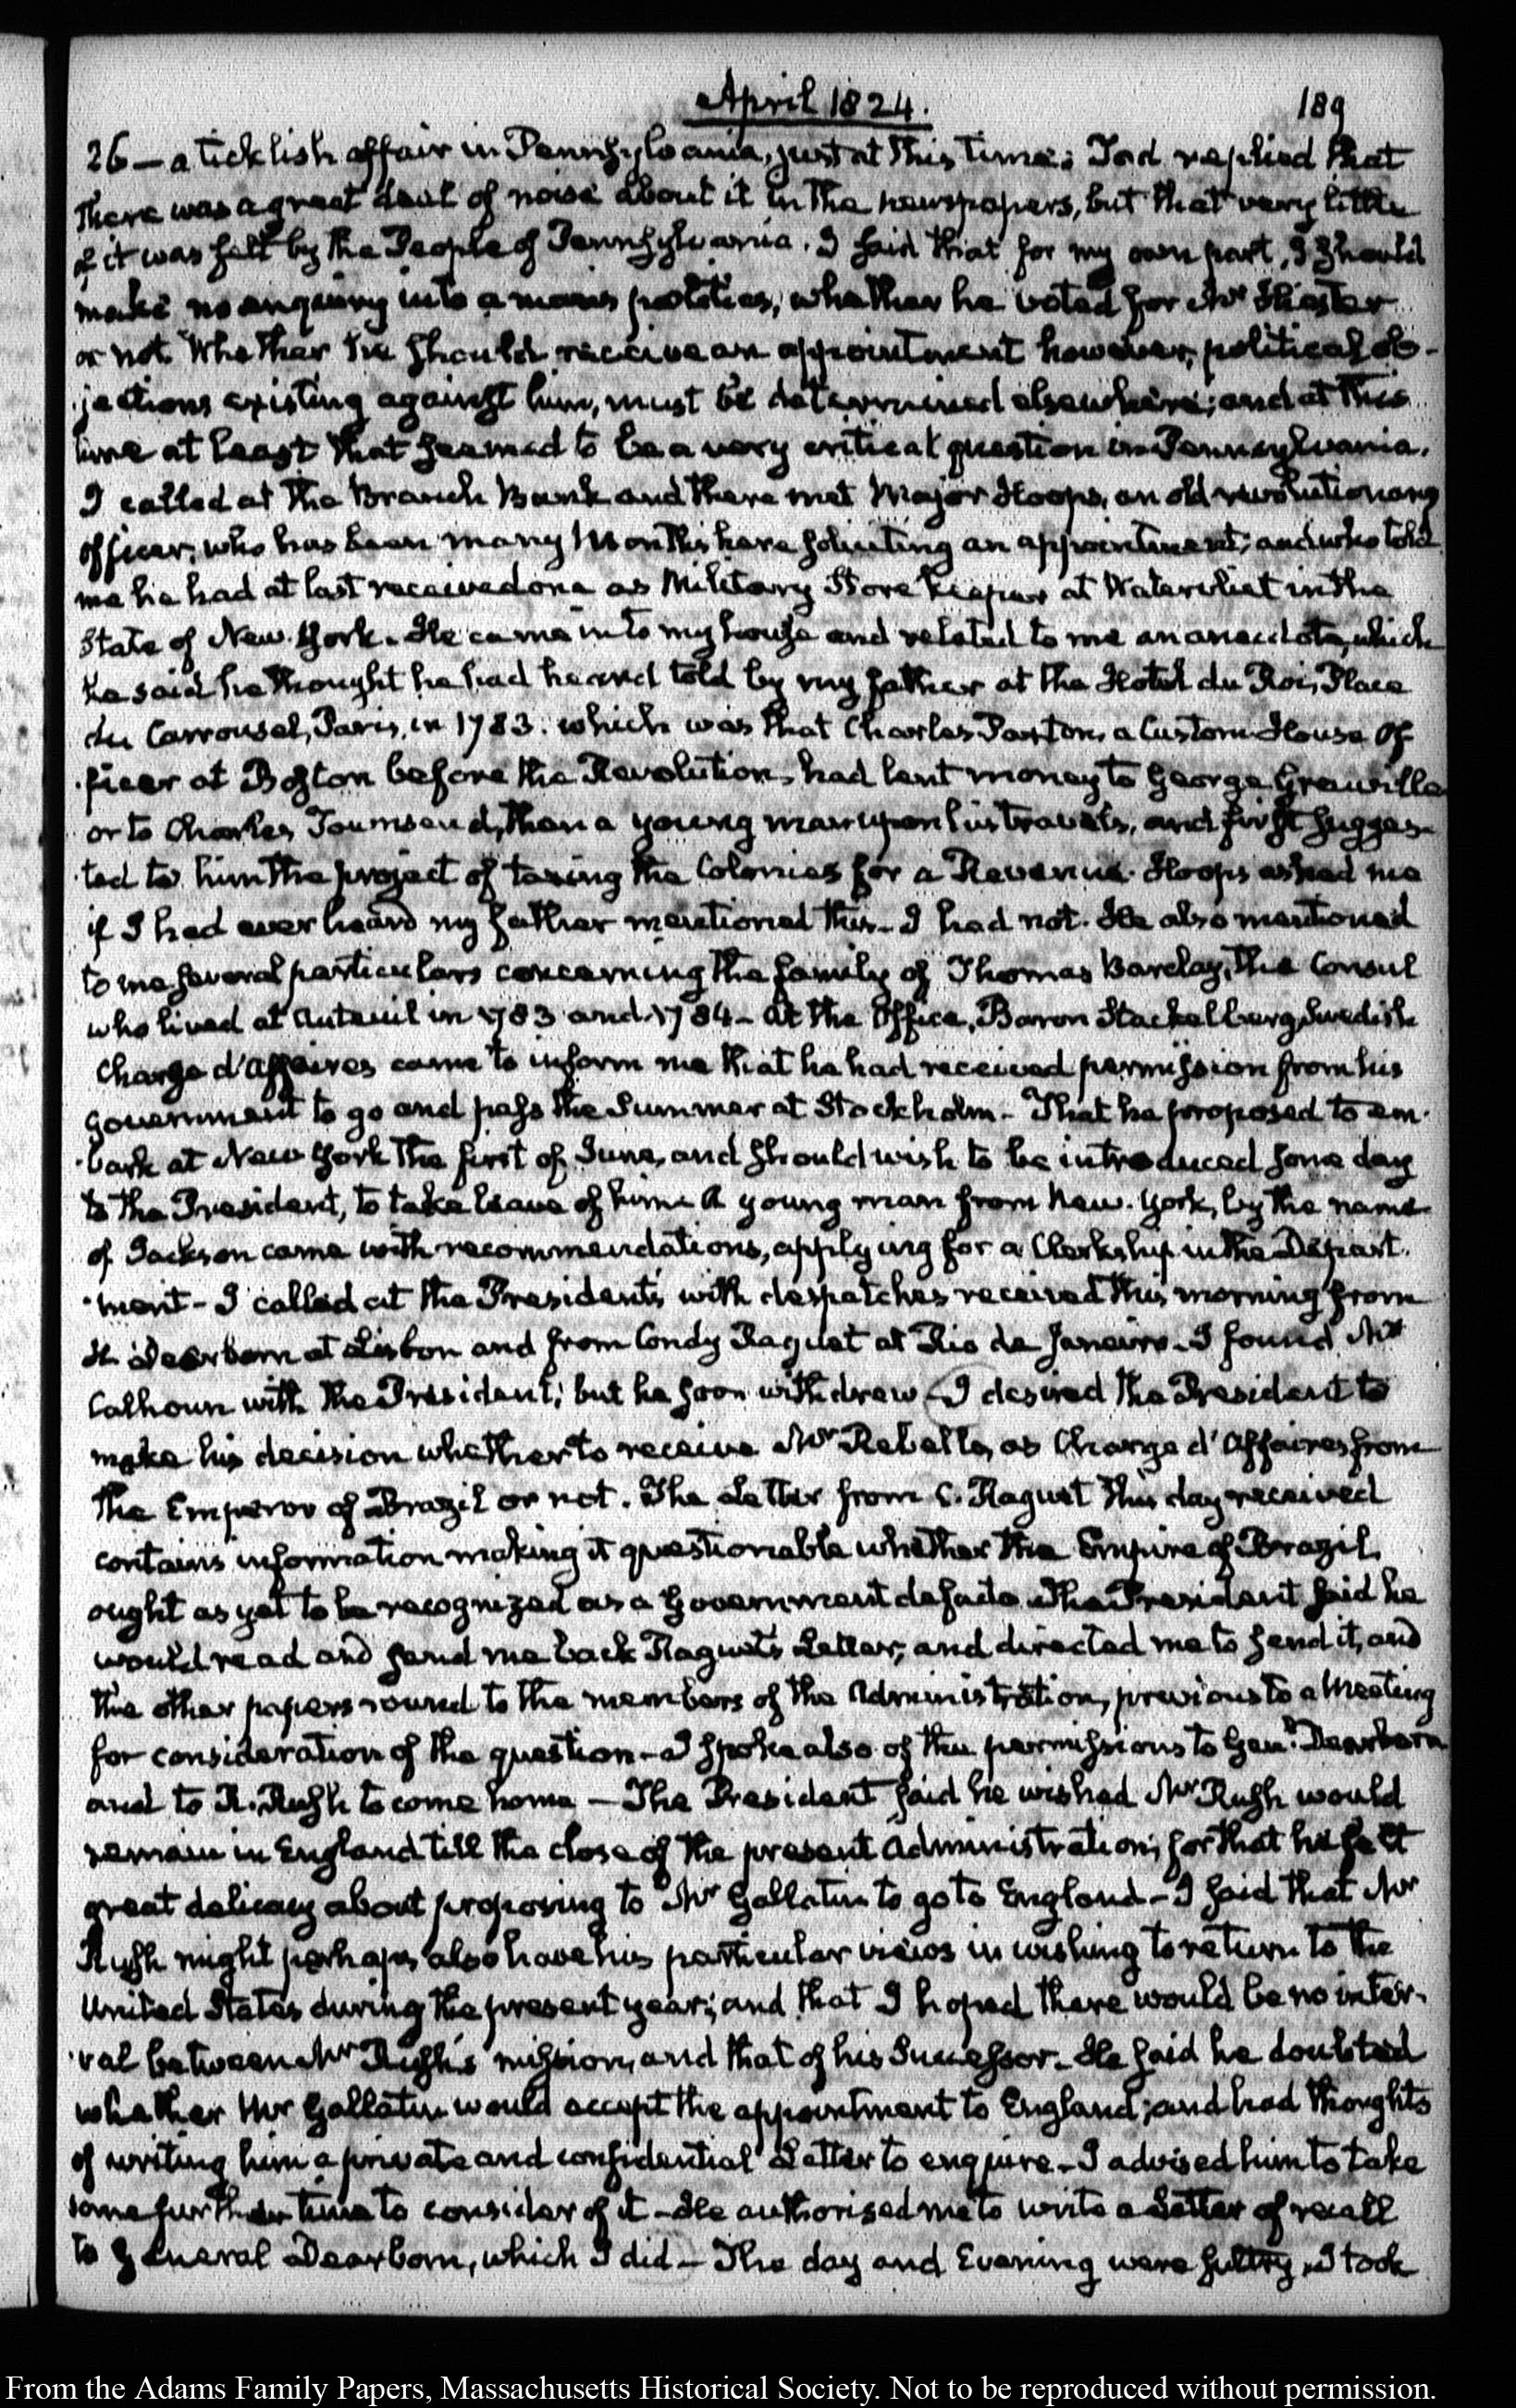 April 1824.
189
26 — a ticklish affair in Pennsylvania, just at this time: Tod replied that
there was a great deal of noise about it in the newspapers, but that very little
of it was felt by the People of Pennsylvania. I said that for my own part, I should
make no enquiry into a man's politics, whether he voted for Mr Hiester
or not. Whether he should receive an appointment however, political ob-
jections existing against him, must be determined elsewhere; and at this
time at least that seemed to be a very critical question in Pennsylvania.
I called at the Branch Bank and there met Major Hoops, an old revolutionary
officer, who has been many Months here soliciting an appointment; and who told
me he had at last received one as Military Store keeper at Watervliet in the
State of New-York. He came into my house and related to me an anecdote, which
he said he thought he had heard told by my father at the Hotel du Roi, Place
du Carrousel, Paris, in 1783. which was that Charles Paxton, a Custom-House Of-
ficer at Boston before the Revolution, had lent money to George Grenville
or to Charles Townsend, then a young man upon his travels, and first sugges-
ted to him the project of taxing the Colonies for a Revenue. Hoops asked me
if I had ever heard my father mentioned this - I had not. He also mentioned
to me several particulars concerning the family of Thomas Barclay, the Consul
who lived at Auteuil in 1783 and 1784 - At the Office, Baron Stackelberg, Swedish
Chargé d'Affaires came to inform me that he had received permission from his
Government to go and pass the Summer at Stockholm - That he proposed to em-
bark at New York the first of June, and should wish to be introduced some day
to the President, to take leave of him - A young man from New-York, by the name
of Jackson came with recommendations, applying for a Clerkship in the Depart-
ment - I called at the President's with despatches received this morning from
H. Dearborn at Lisbon and from Condy Raguet at Rio de Janeiro - I found Mr
Calhoun with the President; but he soon withdrew - I desired the President to
make his decision whether to receive Mr Rebello, as Chargé d'Affaires from
the Emperor of Brazil or not. The Letter from C. Raguet this day received
contains information making it questionable whether the Empire of Brazil,
ought as yet to be recognized as a Government de facto. The President said he
would read and send me back Raguet's Letter; and directed me to send it, and
the other papers round to the members of the Administration, previous to a Meeting
for consideration of the question - I spoke also of the permissions to Genl. Dearborn
and to R. Rush to come home — The President said he wished Mr Rush would
remain in England till the close of the present Administration; for that he felt
great delicacy about proposing to Mr Gallatin to go to England - I said that Mr
Rush might perhaps also have his particular views in wishing to return to the
United States during the present year; and that I hoped there would be no inter-
val between Mr Rush's mission, and that of his Successor. He said he doubted
whether Mr Gallatin would accept the appointment to England; and had thoughts
of writing him a private and confidential Letter to enquire - I advised him to take
some further time to consider of it - He authorised me to write a Letter of recall
to General Dearborn, which I did - The day and Evening were sultry, I took
From the Adams Family Papers, Massachusetts Historical Society. Not to be reproduced without permission.